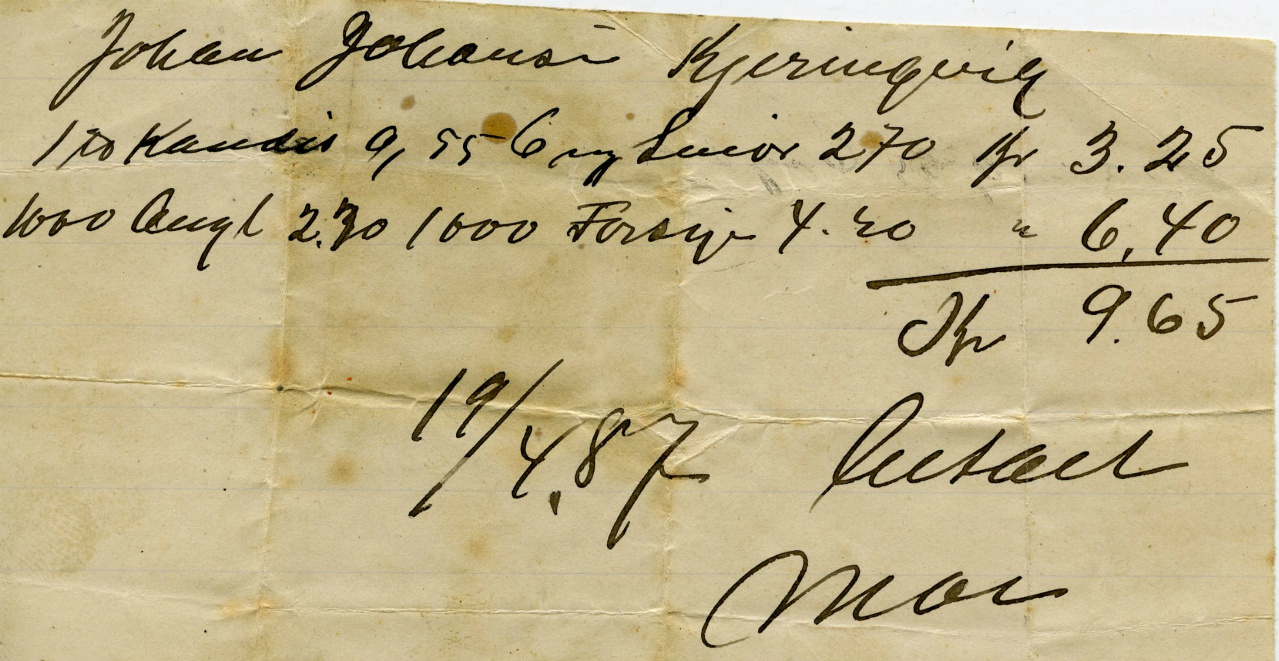 Johan Johansn Kjerringvik
1 to Kandis 0,55 6 ny Snior 270 Kr 3.25
1000 Angl 2.20 1000 Forsyn 4.20 " 6,40
Kr 9.65
19/4.87 Betalt
Moe